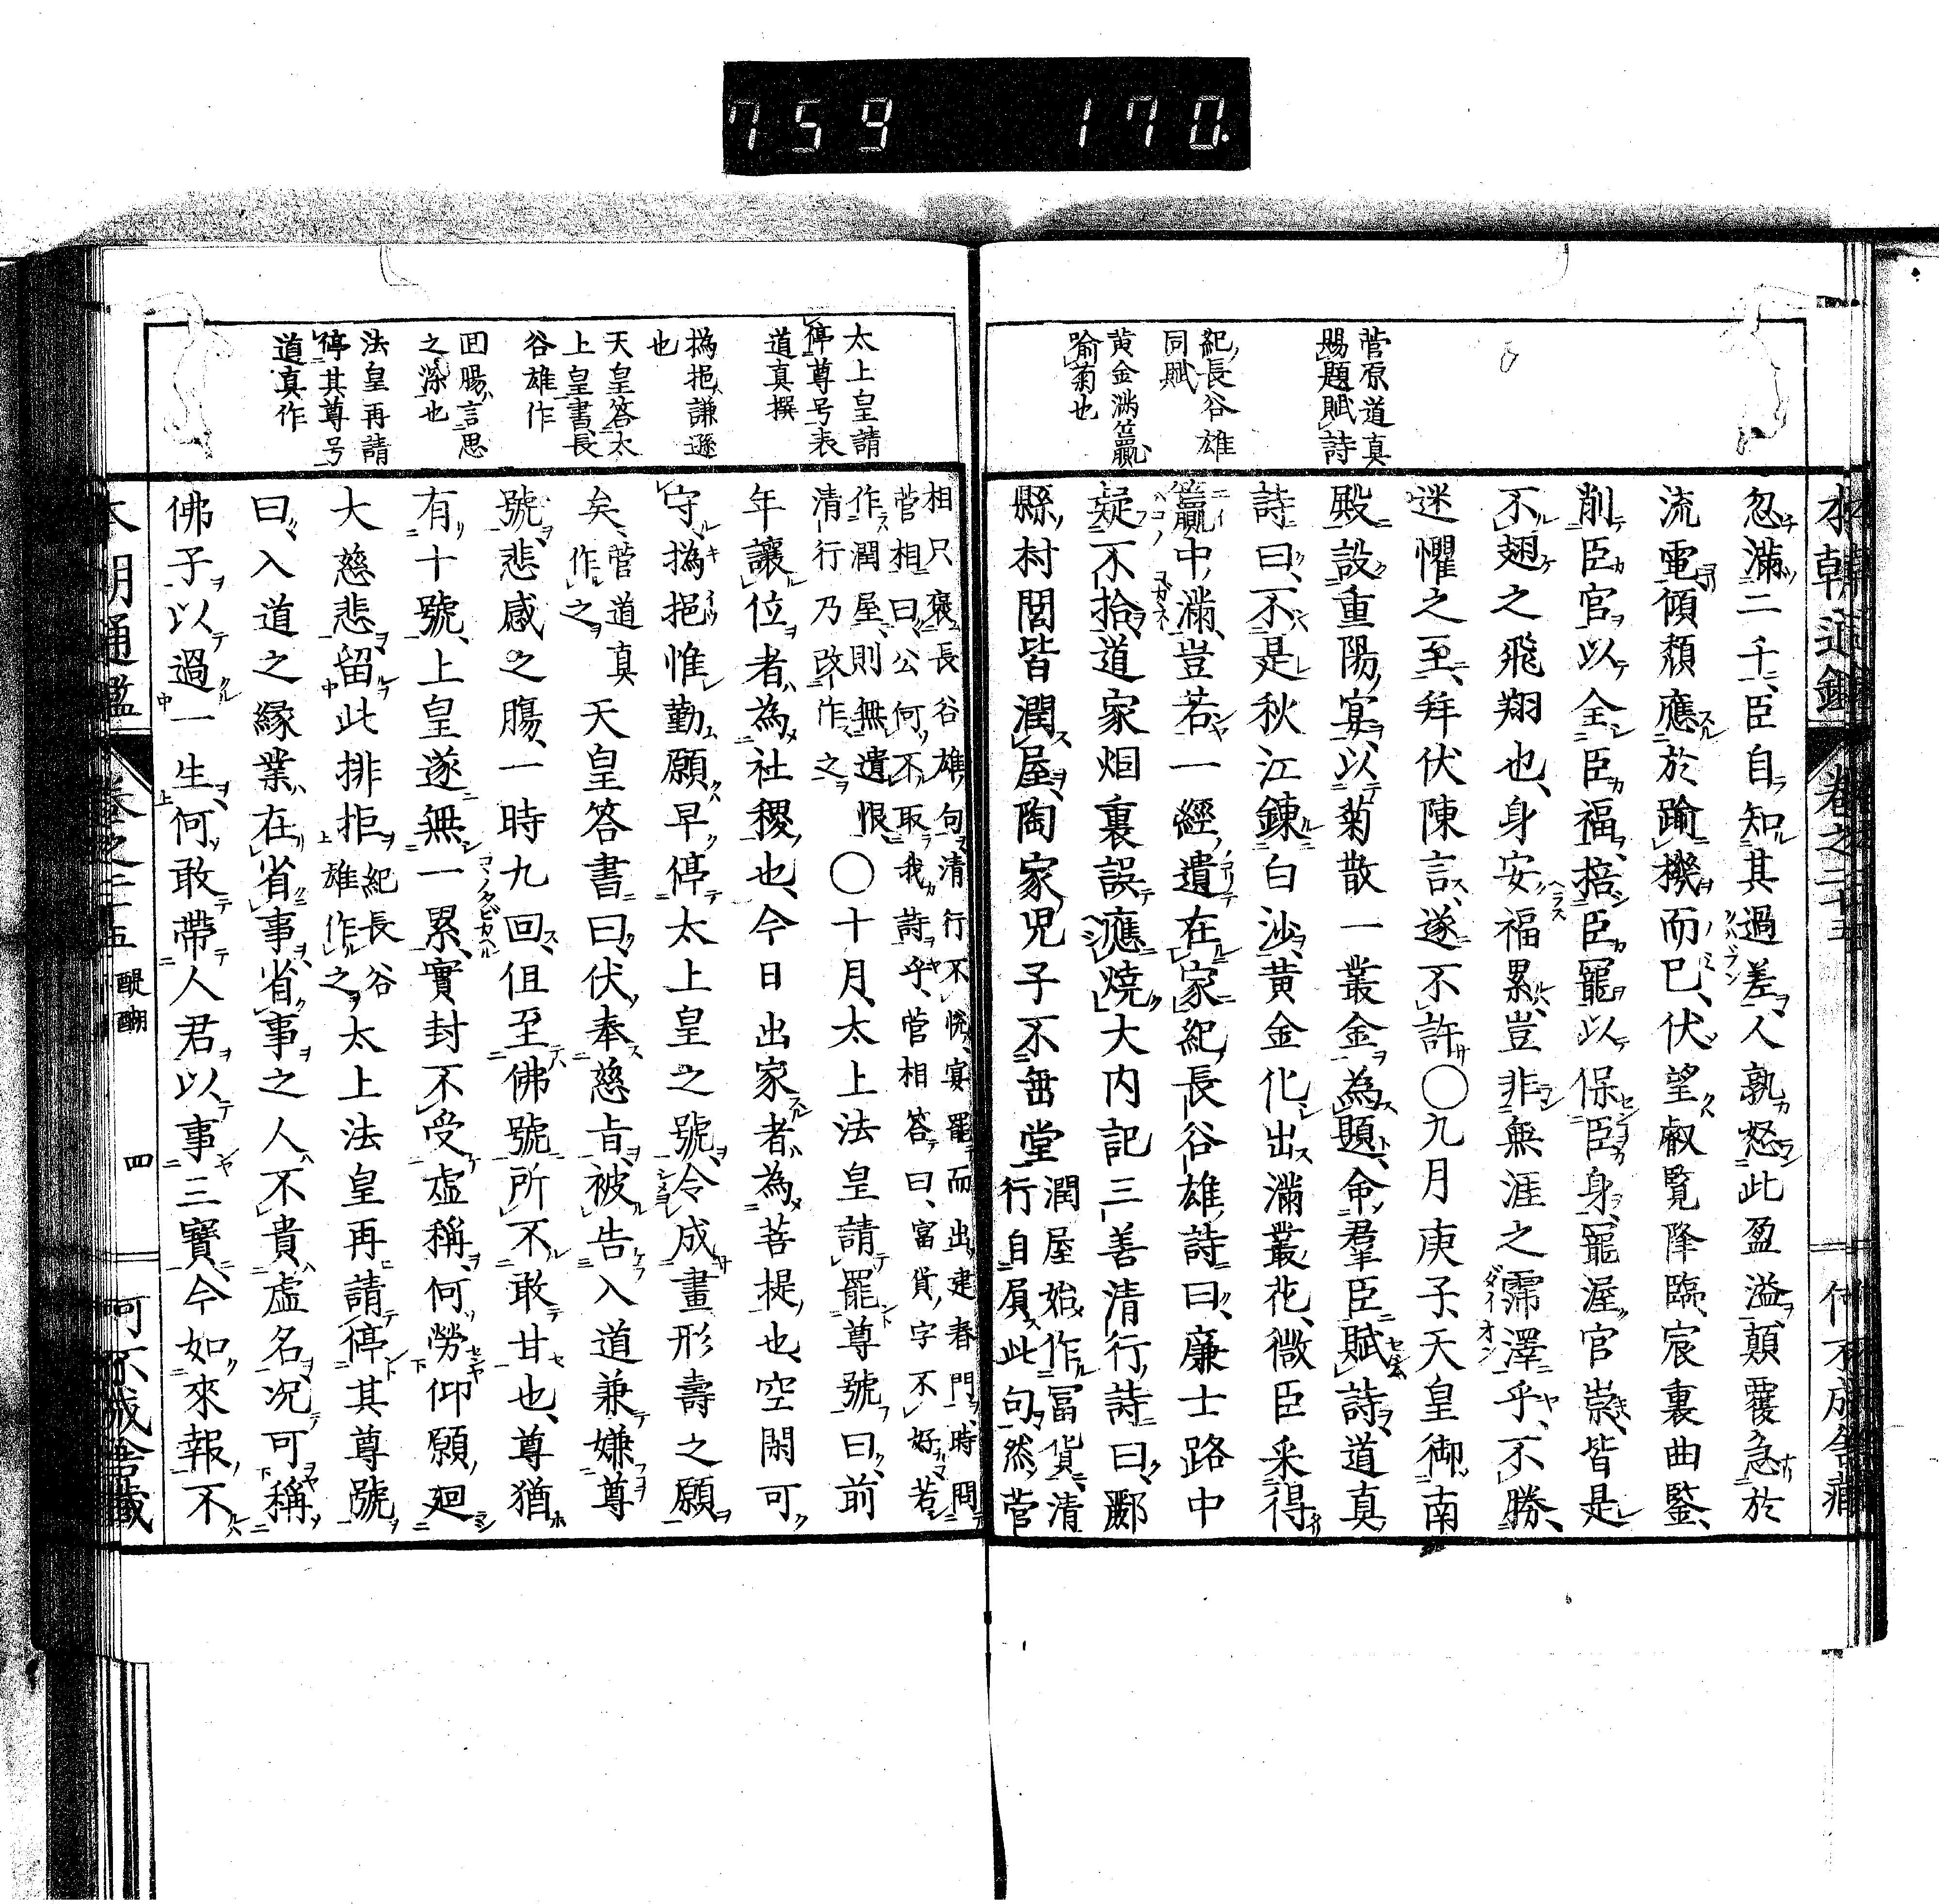 759 170.
本朝通鑑 卷之二十五 何不成舍藏
菅原道真
賜題賦詩
紀長谷雄
同賦
黃金滿籯
喻菊也
忽滿二千臣自知其過差人孰恕此盈溢顛覆急於
流電傾頹應於踰機而已伏望叡覽降臨宸裏曲鑒
削臣官以全臣福掊臣寵以保臣身寵渥官崇皆是
不翅之飛翔也身安福累豈非無涯之霈澤乎不勝
迷懼之至拜伏陳言遂不許〇九月庚子天皇御南
殿設重陽宴以菊散一叢金為題命羣臣賦詩道真
詩曰不是秋江鍊白沙黃金化出滿叢花微臣采得
籯中滿豈若一經遺在家紀長谷雄詩曰廉士路中
疑不拾道家烟裏誤應燒大內記三善清行詩曰酈
縣村閭皆潤屋陶家兒子不垂堂
潤屋始作冨貨清
行自屓此句然菅
相只褒長谷雄句清行不悅宴罷而出建春門時問
菅相曰公何不取我詩乎菅相答曰富貨字不好若
作潤屋則無遺恨
清行乃改作之
〇十月太上法皇請罷尊號曰前
年讓位者為社稷也今日出家者為菩提也空閑可
守撝挹惟勤願早停太上皇之號令成畫形壽之願
矣
菅道真
作之
天皇答書曰伏奉慈旨被告入道兼嫌尊
號悲感之膓一時九回但至佛號所不敢甘也尊猶
有十號上皇遂無一累實封不受虛稱何勞仰願廻
大慈悲留此排拒
紀長谷
雄作之
太上法皇再請停其尊號
曰入道之緣業在省事省事之人不貴虛名况可稱
佛子以過一生何敢帶人君以事三寶今如來報不
太上皇請
停尊号表
道真撰
撝挹謙遜
也
天皇答太
上皇書長
谷雄作
囬腸言思
之深也
法皇再請
停其尊号
道真作
本朝通鑑 卷之二十五 醍醐 四 何不成舍藏